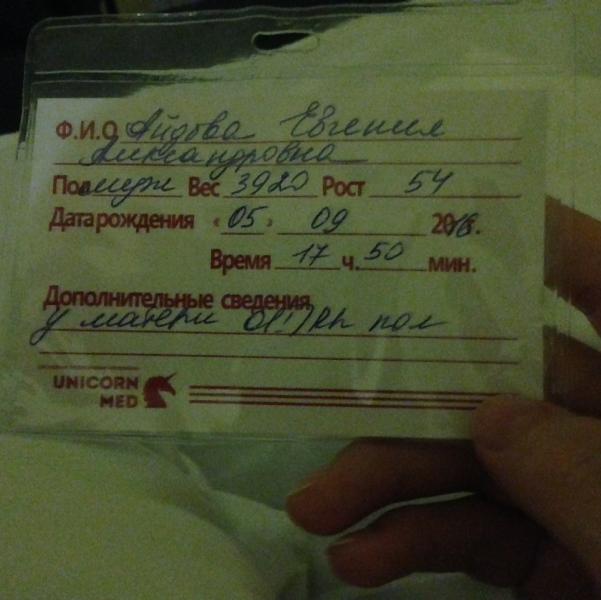 Ф.И.О Айдова Евгения
Александровна
Пол муж Вес 3920 Рост 54
Дата рождения «05» 09 2016г.
Время 17 ч. 50 мин.
Дополнительные сведения
у матери 0(I) Rh пол
UNICORN
MED